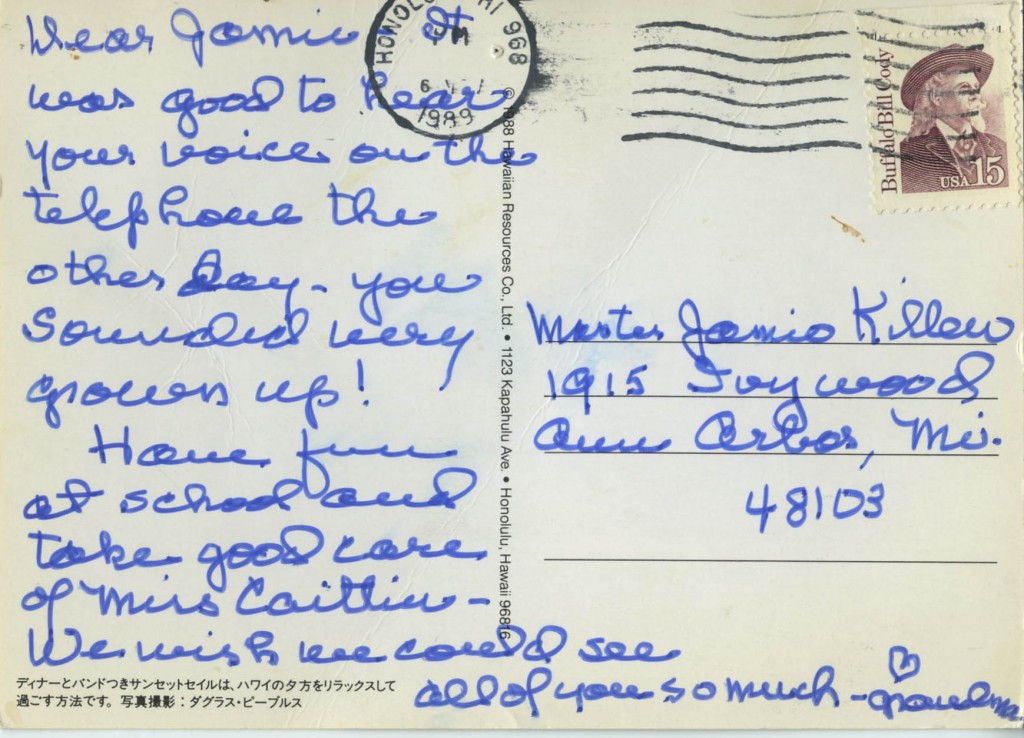 Dear Jamie It
was good to hear
your voice on the
telephone the
other day - you
sounded very
grown up!
Have fun
at school and
take good care
of Miss Caitlin -
We wish we could see
all of you so much - ♡ grandma
ディナーとバンドつきサンセットセイルは、ハワイの夕方をリラックスして
過ごす方法です。写真撮影：ダグラス・ピープルス
© 1988 Hawaiian Resources Co., Ltd. • 1123 Kapahulu Ave. • Honolulu, Hawaii 96816
HONOLULU, HI 968
PM
1989
Buffalo Bill Cody
USA 15
Master Jamie Killew
1915 Ivywood
Ann Arbor, Mi.
48103